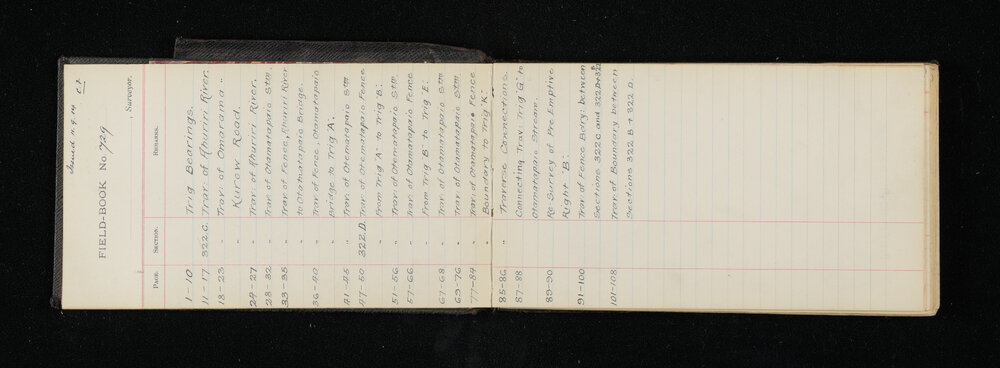 Issued 11.9.14 C.F.
FIELD-BOOK No. 729
, Surveyor.
PAGE. SECTION. REMARKS.
1-10 Trig Bearings.
11-17 322 C. Trav. of Ahuriri River.
18-23 " Trav. of Omarama -
" Kurow Road.
24-27 " Trav: of Ahuriri River.
28-32 " Trav. of Otamatapaio Stm.
33-35 " Trav. of Fence, Ahuriri River
" to Otamatapaio Bridge.
36-40 " Trav of Fence, Otamatapaio
" Bridge to Trig "A".
41-45 " Trav. of Otamatapaio Stm
47-50 322.D. Trav. of Otamatapaio Fence
From Trig "A" to Trig B".
51-56 " Trav. of Otamatapaio Stm
57-66 " Trav. of Otamatapaio Fence
" From Trig B" to Trig "E".
67-68 " Trav of Otamatapaio Stm
69-76 " Trav. of Otamatapaio Stm.
77-84 " Trav. of Otamatapaio Fence
" Boundary to Trig "K".
85-86 " Traverse Connections.
87-88 Connecting Trav: Trig G" to
Otamatapaio Stream.
89-90 Re-Survey of Pre Emptive
Right "B".
91-100 Trav. of Fence Bdry: between
Sections 322 C and 322 D+322B
101-108 Trav. of Boundary between
Sections 322 B + 322 D.